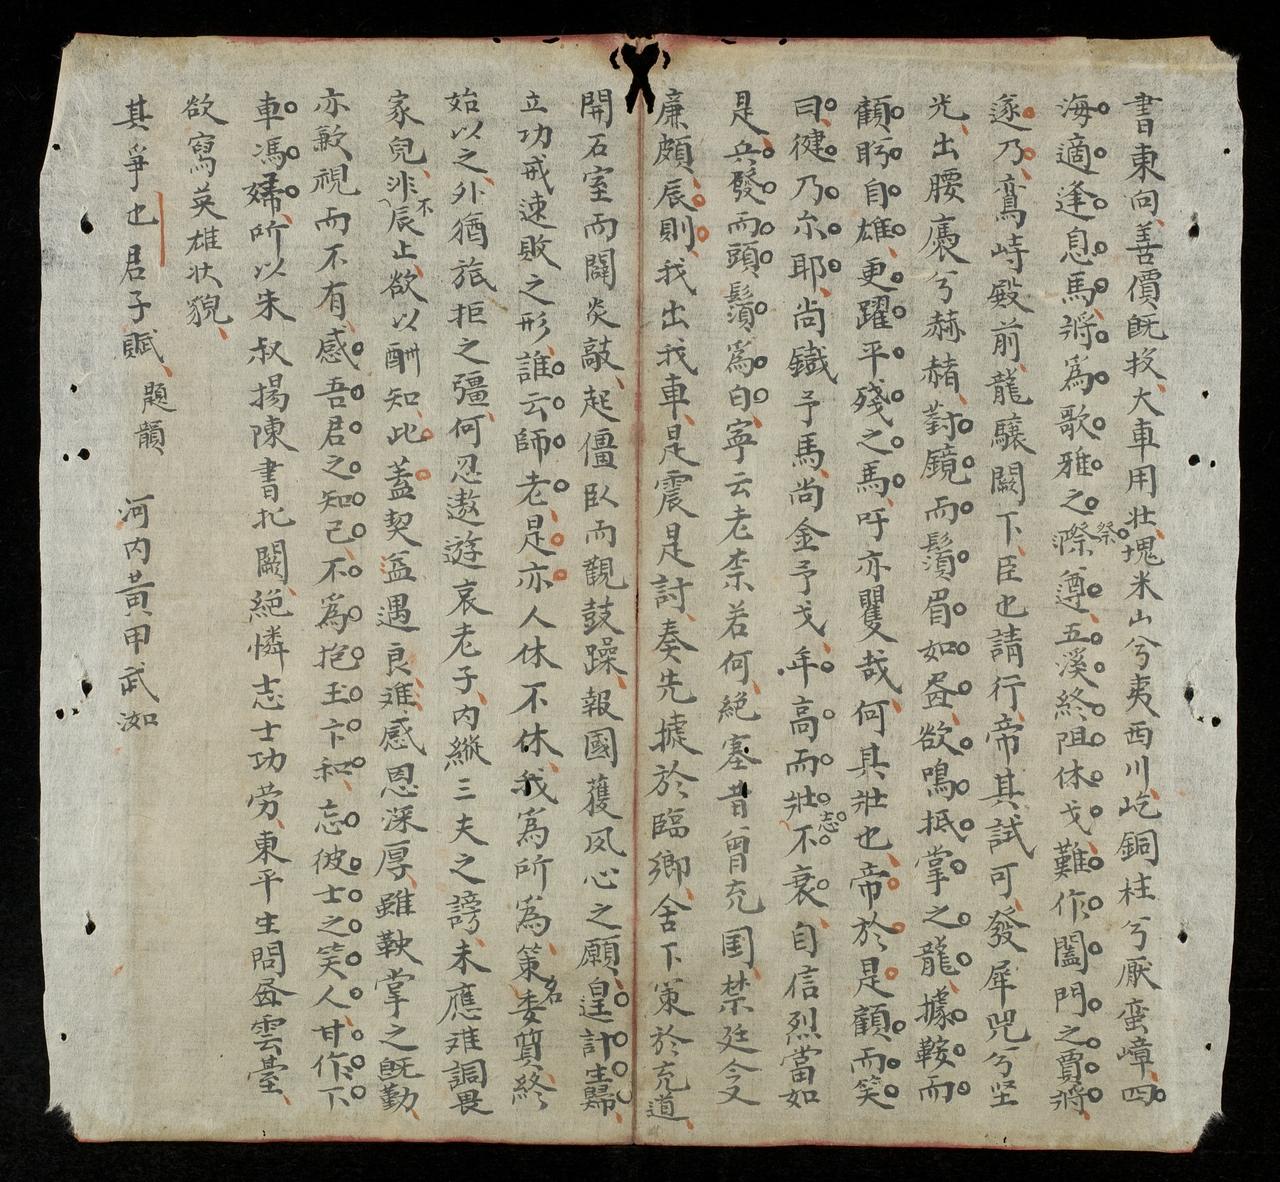 書東向善價旣投大車用壯塊米山兮夷西川屹銅柱兮厭蛮嶂四
海適逢息馬將爲歌雅之際祭遵五溪終阻休戈難作闔門之賈將
遂乃鸞峙殿前龍驤闕下臣也請行帝其試可發犀兕兮坚
光出腰褭兮赫赭對鏡而鬚眉如昼欲鳴抵掌之龍據鞍而
顧眄自雄更躍平殘之馬吁亦矍哉何其壯也帝於是顧而笑
曰健乃尔耶尚鐡予馬尚金予戈年高而壯志不衰自信烈當如
是兵發而頭鬚爲白寧云老柰若何絕塞昔曾充国禁廷今又
廉頗辰則我出我車是震是討奏先據於臨鄉舍下策於充道
開石室而闢炎敲起僵臥而觀鼓躁報國獲夙心之願遑計生歸
立功戒速敗之形誰云師老是亦人休不休我爲所爲策名委質終
始以之外猶旅拒之彊何忍遨遊哀老子內縱三夫之謗未應难詞畏
家兒非辰不止欲以酬知此蓋契益遇良难感恩深厚雖鞅掌之旣勤
亦歉視而不有感吾君之知己不爲抱玉卞和忘彼士之笑人甘作下
車馮婦所以朱叔揚陳書扎闕絕憐志士功劳東平生問昼雲臺
欲寫英雄壮貌
其爭也君子賦 題韻 河内黄甲武洳